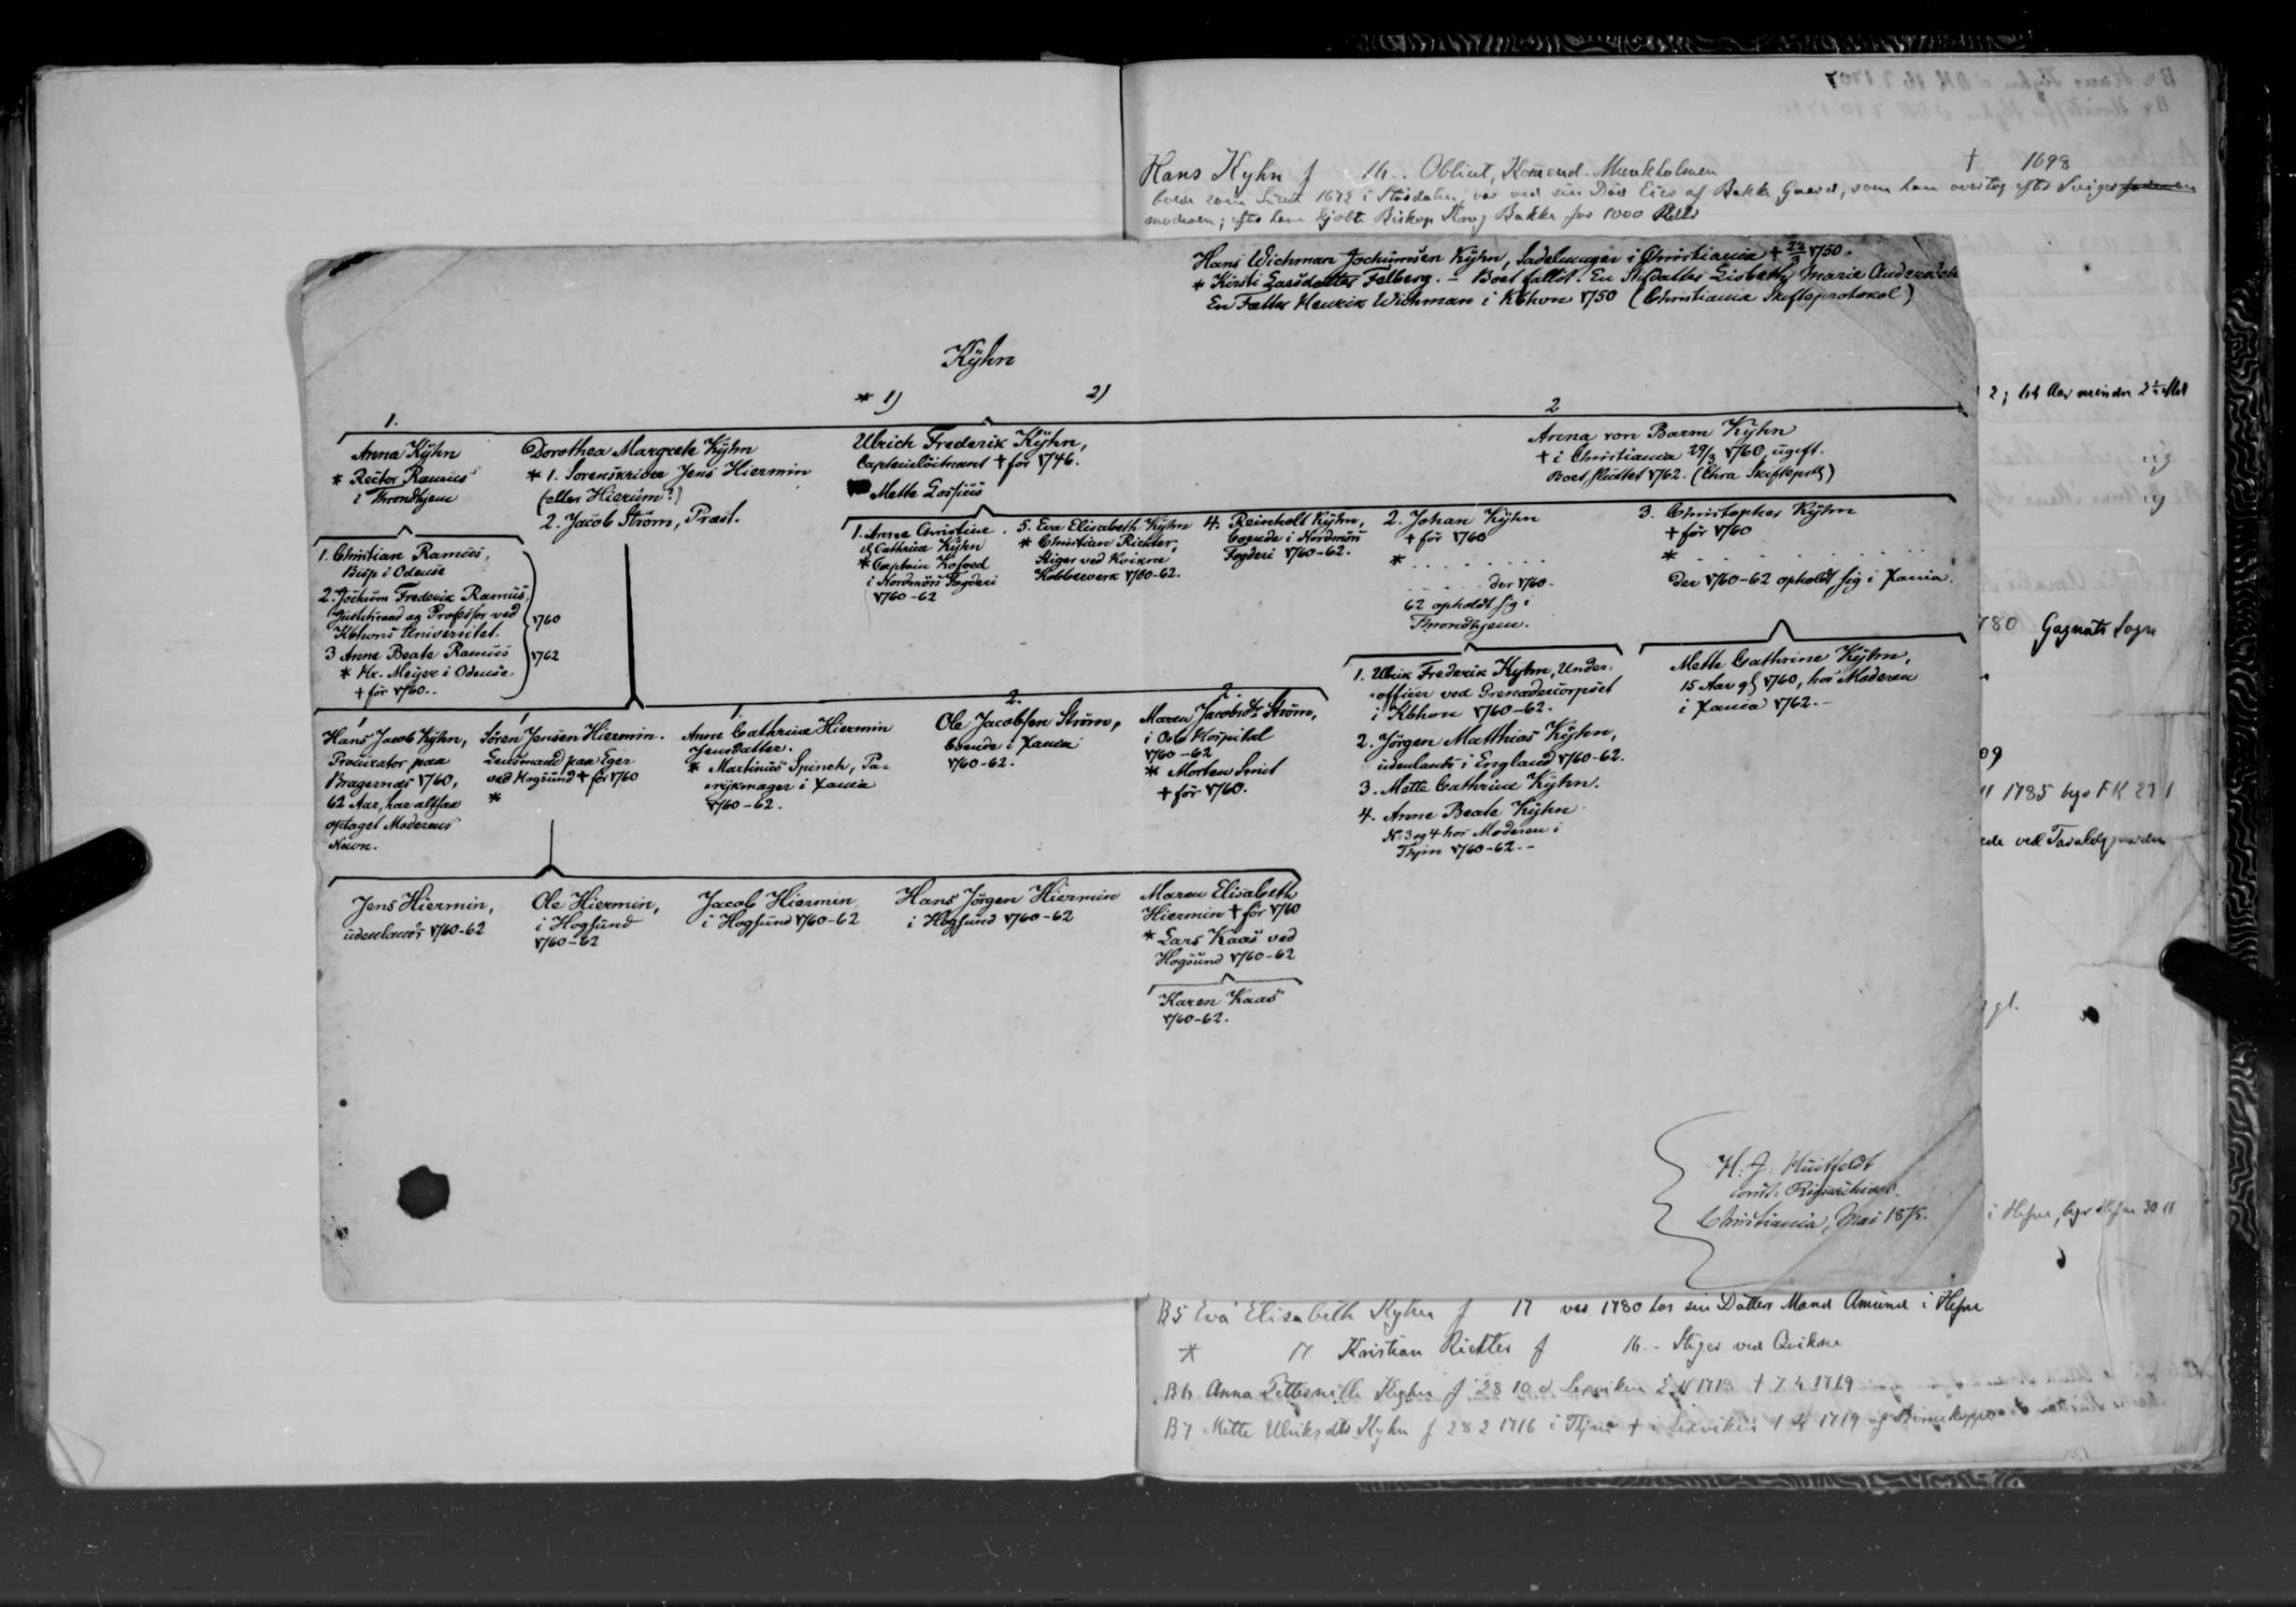 Hans Kyhn f 16.. Obliut, Komend. Munkholmen † 1698
boede som Lieut 1672 i Størdalen, var ved sin Død Eier af Bakke Gaard, som han overtog efter Sviger
moderen; efter ham kjøbte Biskop Krog Bakke for 1000 Rdlr
Hans Wichman Jochumsen Kÿhn, Sadelmager i Christiania † 23/3 1750.
* Kirsti Larsdatter Felberg. – Boet fallit. En Stifdatter Lisbeth Marie Andersdatr
En Fætter Henrik Wichman i Kbhvn 1750 (Christiania Skifteprotokol)
Kÿhn
* 1) 2)
1.
2
Anna Kÿhn
* Rector Ramus
i Throndhjem
Dorothea Margrete Kÿhn
* 1. Sorenskriver Jens Hiermin
(eller Hierum?)
2. Jacob Ström, Præst.
Ulrich Frederik Kÿhn,
Capteinlöitnant † för 1746.
Mette Lossius
Anna von Barm Kÿhn
† i Christiania 29/3 1760, ugift.
Boet sluttet 1762. (Chra Skifteprtk)
1. Christian Ramus,
Bisp i Odense
2. Jochum Frederik Ramus,
Justitsraad og Professor ved
Kbhvns Universitet.
3 Anne Beate Ramus
* Hr. Meyer i Odense
† för 1760..
1760
1762
1. Anne Christine
el. Cathrine Kÿhn
* Captein Kofoed
i Nordmörs Fogderi
1760-62
5. Eva Elisabeth Kÿhn
* Christian Richter,
Stiger ved Kvikne
Kobberverk 1760-62.
4. Reinholt Kÿhn,
boende i Nordmörs
Fogderi 1760-62.
2. Johan Kÿhn
† för 1760
* . . . . . . . .
. . . . der 1760-
62 opholdt sig i
Throndhjem.
3. Christopher Kÿhn
† för 1760
* . . . . . . . . . .
der 1760-62 opholdt sig i Xania.
1. Ulrik Frederik Kyhn, Under-
officer ved Grenadercorpset
i Kbhvn 1760-62.
2. Jörgen Matthias Kÿhn,
udenlands i England 1760-62.
3. Mette Cathrine Kÿhn.
4. Anne Beate Kÿhn
Nr. 3 og 4 hos Moderen i
Thjm 1760-62.--
Mette Cathrine Kÿhn,
15 Aar gl. 1760, hos Moderen
i Xania 1762.-
1
Hans Jacob Kÿhn,
Procurator paa
Bragernæs 1760,
62 Aar, har altsaa
optaget Moderens
Navn.
1
Sören Jensen Hiermin.
Lensmand paa Eger
ved Hogsund † för 1760
*
1.
Anne Cathrine Hiermin
Jensdatter.
* Martinus Spinch, Pa-
rykmager i Xania
1760-62.
2.
Ole Jacobsen Ström,
boende i Xania
1760-62.
2.
Maren Jacobsdr Ström,
i Oslo Hospital
1760-62
* Morten Smit
† för 1760.
Jens Hiermin,
udenlands 1760-62
Ole Hiermin,
i Hogsund
1760-62
Jacob Hiermin
i Hogsund 1760-62
Hans Jörgen Hiermin
i Hogsund 1760-62
Maren Elisabeth
Hiermin † för 1760
* Lars Kaas ved
Hogsund 1760-62
Karen Kaas
1760-62.
H. J. Huitfeldt
const. Rigsarchivar.
Christiania, Mai 1875.
2; 64 Aar mindre 2½ Md
ug
ug
780 Gagnats Sogn
09
11 1785 bgr FK 23 1
ede ved Tavaldgaarden
gl.
i Hefne, bgr Hefne 30 11
B5 Eva Elisabeth Kyhn f 17 var 1780 hos sin Datters Mand Amund i Hefne
* 17 Kristian Richter f 16.- Stiger ved Qvikne
B6 Anna Petternille Kyhn f 28 10 d Lexviken 2 11 1718 † 7 4 1719
B7 Mette Ulriksdtr Kyhn f 28 2 1716 i Thjm † i Lexviken 1 4 1719 af Börnekopper